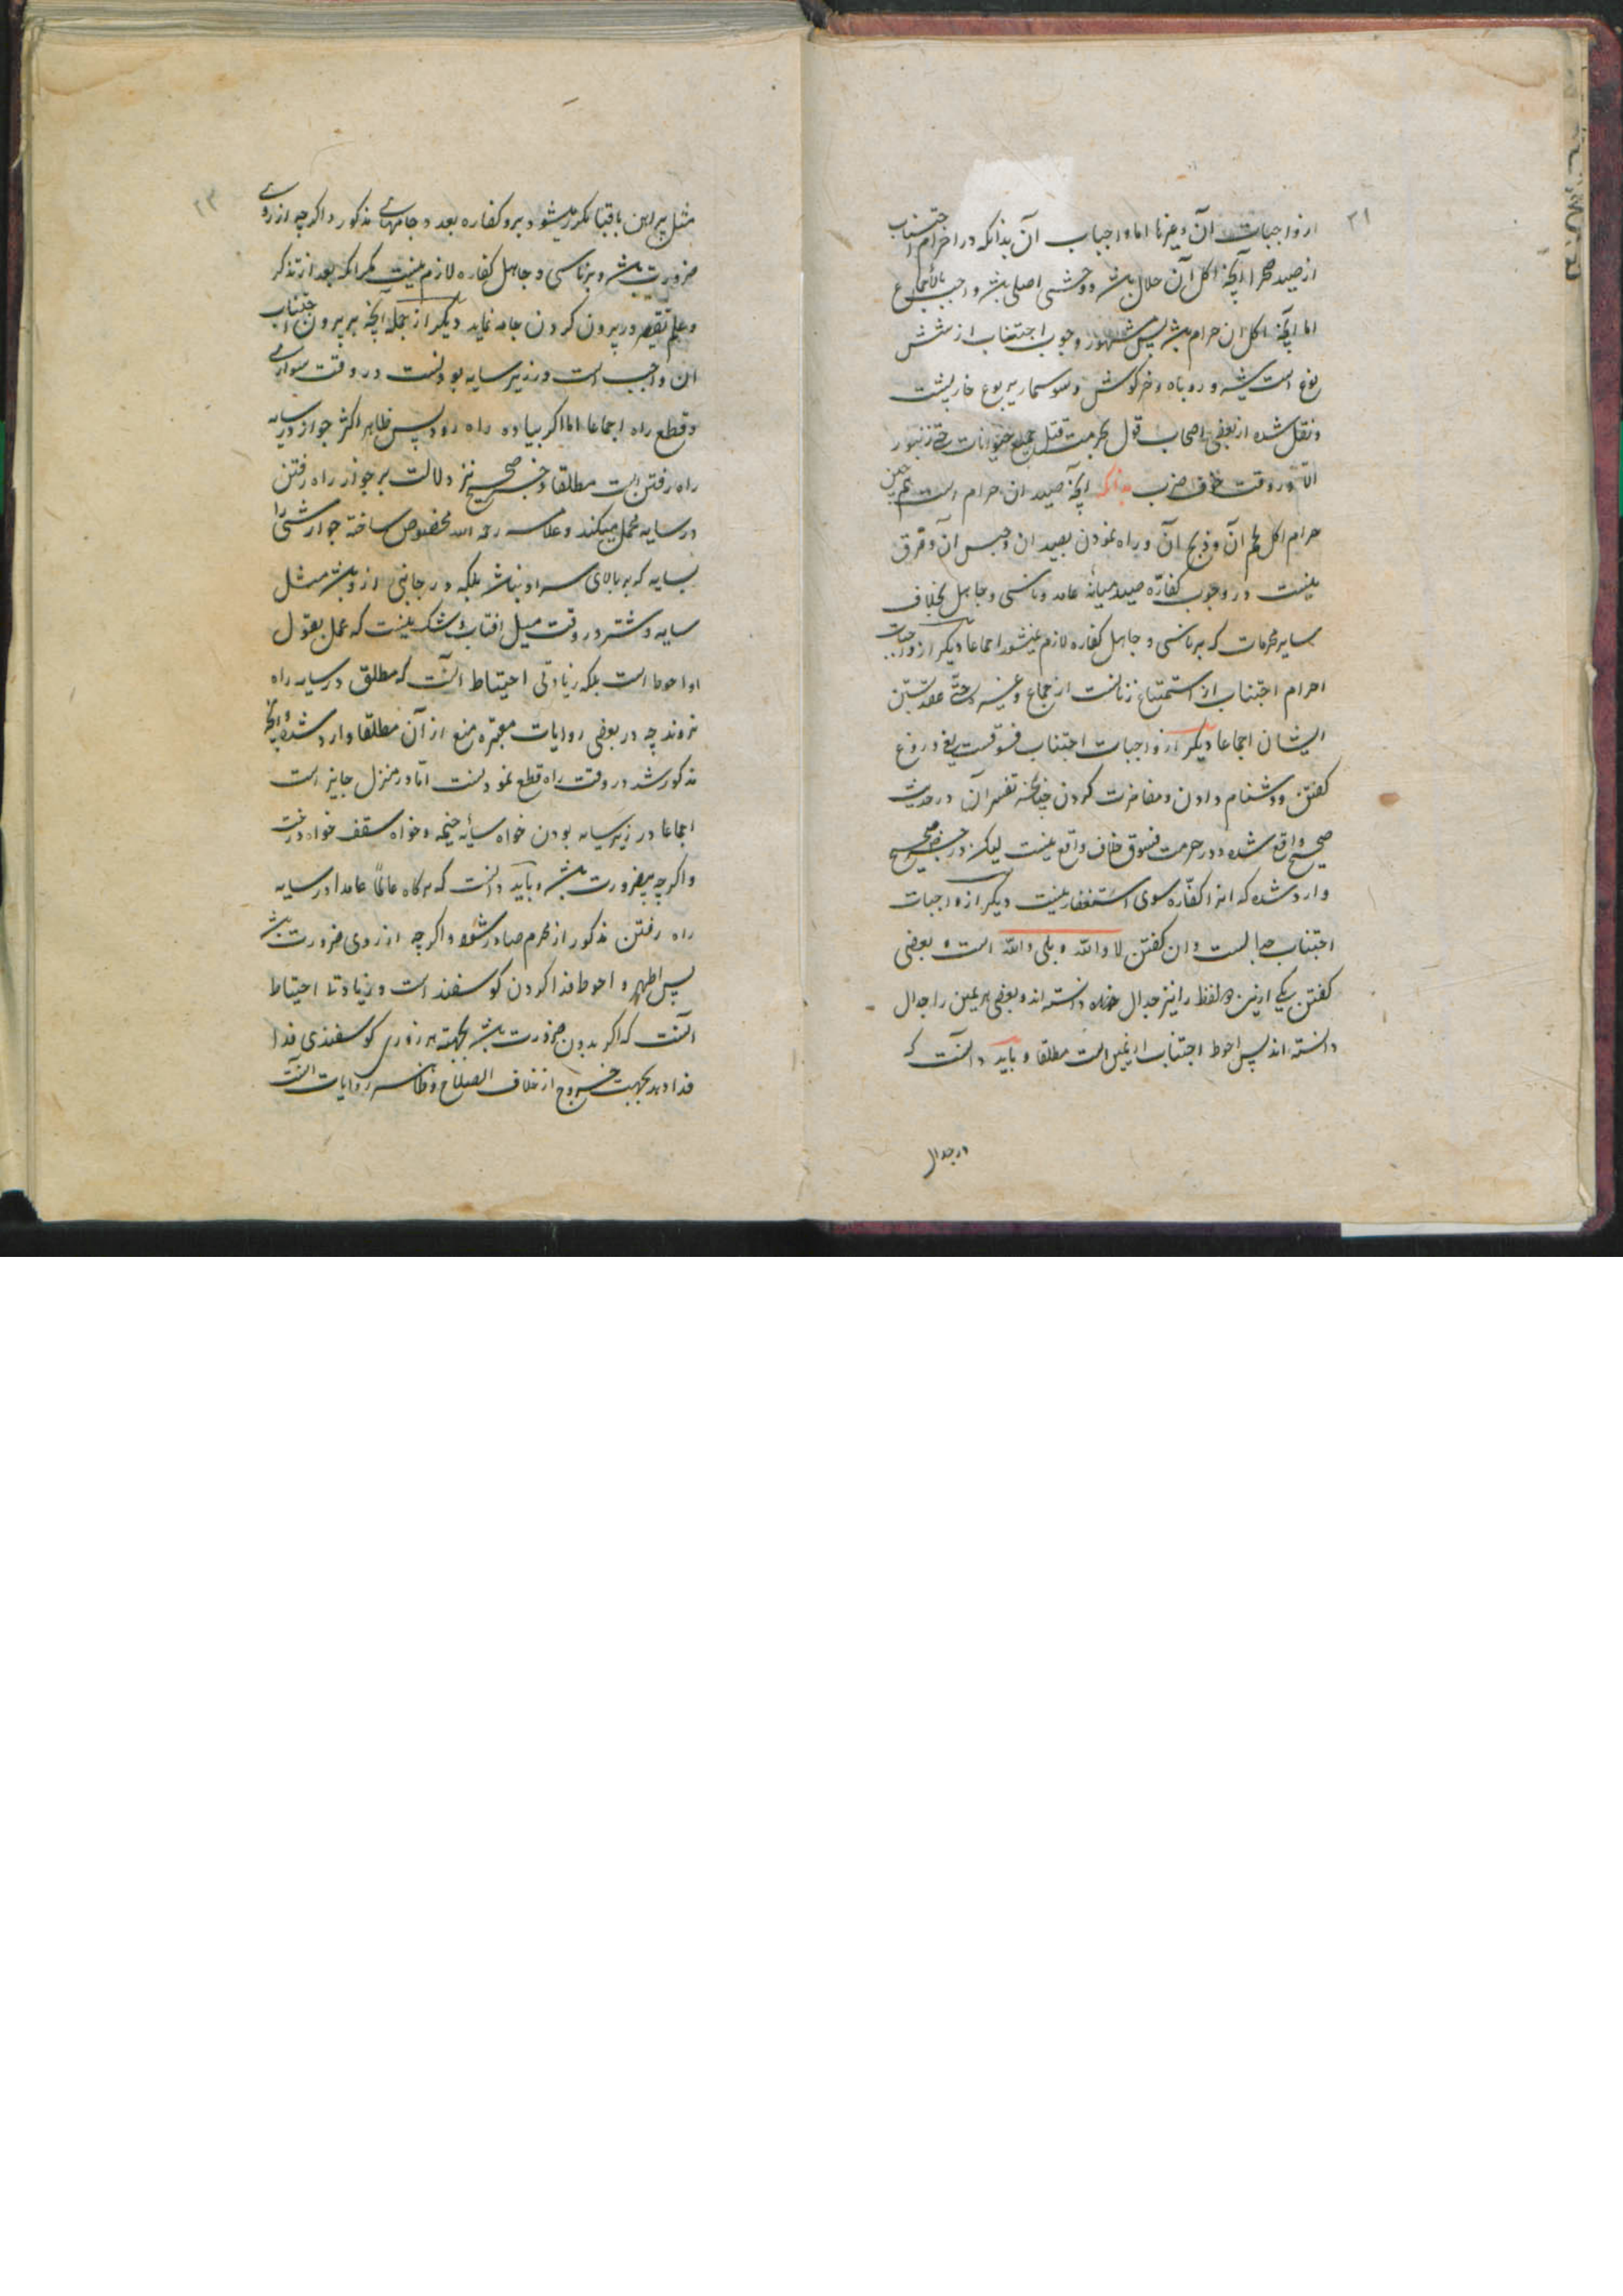 ۲۱
از واجبات آن و غیرها اما واجبات آن بدانکه در احرام اجتناب
از صید صحرا آنچه اکل آن حلال باشد و وحشی اصلی باشد واجب بالاجماع
اما آنچه اکل ان حرام باشد پس مشهور وجوب اجتناب از شش
نوع است شیر و روباه و خرکوش و سوسمار یربوع خارپشت
و نقل شده از بعضی اصحاب قول بحرمت قتل جمیع حیوانات حتی زنبور
الا در وقت خوف ضرب بدانکه آنچه صید ان حرام است هم چنین
حرام اکل لحم آن و ذبح آن و راه نمودن بصید ان و حبس آن و فرق
نیست در وجوب کفاره صید میانه عامد و ناسی و جاهل بخلاف
سایر محرمات که بر ناسی و جاهل کفاره لازم نمیشود اجماعا دیکر از واجبات
احرام اجتناب از استمتاع زنانست از جماع و غیره حتی عقد بستن
ایشان اجماعا دیکر از واجبات اجتناب فسوقست یعنی دروغ
کفتن و دشنام دادن و مفاخرت کردن چنانچه تفسیر آن در حدیث
صحیح واقع شده و در حرمت فسوق خلاف واقع نیست لیکن در خبر صحیح
وارد شده که انرا کفاره سوی استغفار نیست دیکر از واجبات
اجتناب جدالست و ان کفتن لا والله و بلی والله است و بعضی
کفتن یکی ازین دو لفظ را نیز جدال دانسته اند و بعضی هر یمین را جدال
دانسته اند پس احوط اجتناب از یمین است مطلقا و باید دانست که
در جدال
۲۲
مثل پیراهن یا قبا مکرر میشود برو کفاره بعد و جامهای مذکور و اکرچه از روی
ضرورت باشد و بر ناسی و جاهل کفاره لازم نیست مکر انکه بعد از تذکر
و علم تقصیر در بیرون کردن جامه نماید دیکر از جمله آنچه بر مردان اجتناب
ان واجب است در زیر سایه بودنست در وقت سواری
و قطع راه اجماعا اما اکر پیاده راه رود پس ظاهر اکثر جواز در سایه
راه رفتن است مطلقا و خبر صحیح نیز دلالت بر جواز راه رفتن
در سایه محمل میکند و علامه رحمه الله مخصوص ساخته جواز مشی را
بسایه که بر بالای سر او نباشد بلکه در جانبی از و باشد مثل
سایه شتر در وقت میل افتاب و شک نیست که عمل بقول
او احوط است بلکه زیادتی احتیاط آنست که مطلق در سایه راه
نروند چه در بعضی روایات معتبره منع از آن مطلقا وارد شده و آنچه
مذکور شد در وقت راه قطع نمودنست اما در منزل جایز است
اجماعا در زیر سایه بودن خواه سایه خیمه و خواه سقف خواه درخت
و اکرچه بیضرورت باشد و باید دانست که هرکاه عالما عامدا در سایه
راه رفتن مذکور از محرم صادر شود و اکرچه از روی ضرورت باشد
پس اظهر و احوط فدا کردن کوسفند است و زیادتی احتیاط
آنست که اکر بدون ضرورت باشد بجهة هر روزی کوسفندی فدا
فدا دهد بجهت خروج از خلاف الصلاح و ظاهر روایات آنست